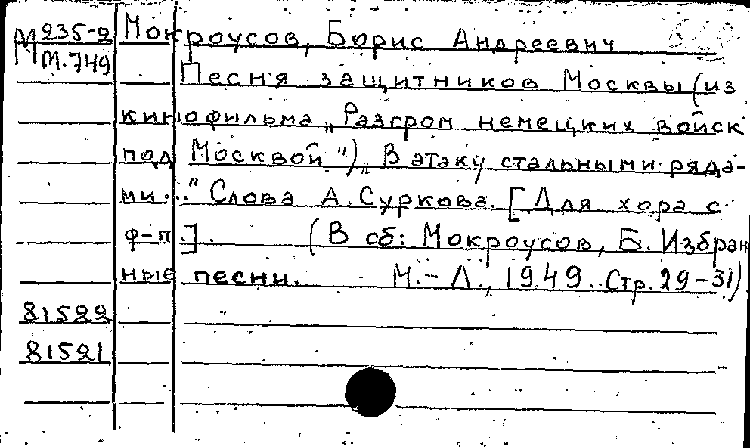 М 235-2 Мокроусов, Борис Андреевич
М.749 Песня защитников Москвы (из
кинофильма „Разгром немецких войск
под Москвой") „В атаку стальными ряда-
ми..." Слова А. Суркова. [Для хора с
ф-п.]. (В сб: Мокроусов, Б. Избран
ные песни. М.-Л., 1949. Стр. 29-31)
81522
81521